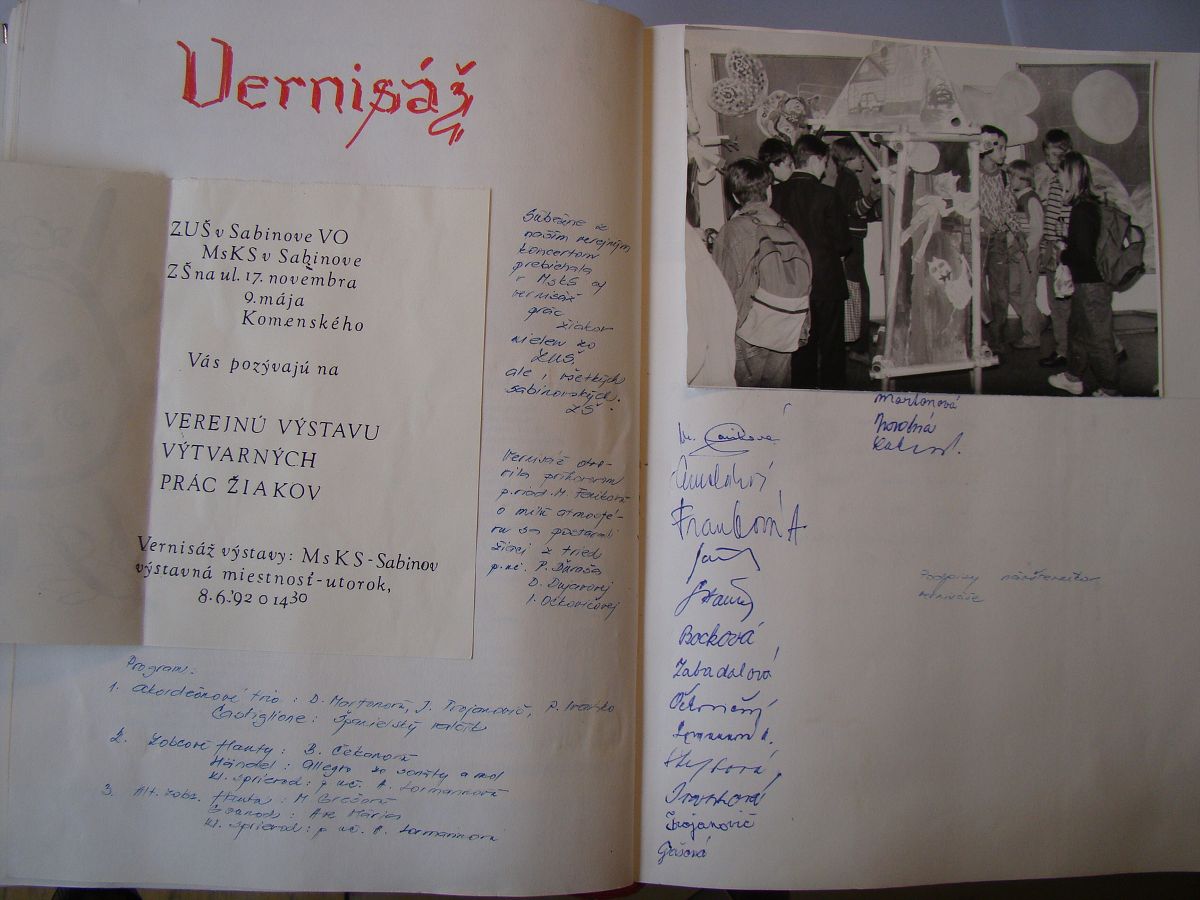 Vernisáž
ZUŠ v Sabinove VO
MsKS v Sabinove
ZŠ na ul. 17. novembra
9. mája
Komenského
Vás pozývajú na
VEREJNÚ VÝSTAVU
VÝTVARNÝCH
PRÁC ŽIAKOV
Vernisáž výstavy: MsKS-Sabinov
výstavná miestnosť-utorok,
8.6.'92 o 14³⁰
Súbežne s
naším verejným
koncertom
prebiehala
v MsKS aj
vernisáž
prác
žiakov
nielen zo
ZUŠ,
ale i všetkých
sabinovských
ZŠ.
Vernisáž otvo-
rila príhovorom
p. riad. M. Feniková
o milú atmosfé-
ru sa postarali
žiaci z tried
p. uč. P. Ďuraša
D. Dujavovej
I. Očkovičovej
Program:
1. Akordeónové trio: D. Martonová, J. Trojanovič, P.
Castiglione: Španielsky valčík
2. Zobcové flauty: B. Čekanová
Händel: Allegro zo sonáty a mol
kl. sprievod: p. uč. A. Lormannová
3. Alt. zobc. flauta: M.
Gounod: Ave Mária
kl. sprievod: p. uč. A. Lormannová
Martonová
Novotná
Franková A
Bocková
Zabadalová
Trojanovič
Gašová
Podpisy návštevníkov
vernisáže